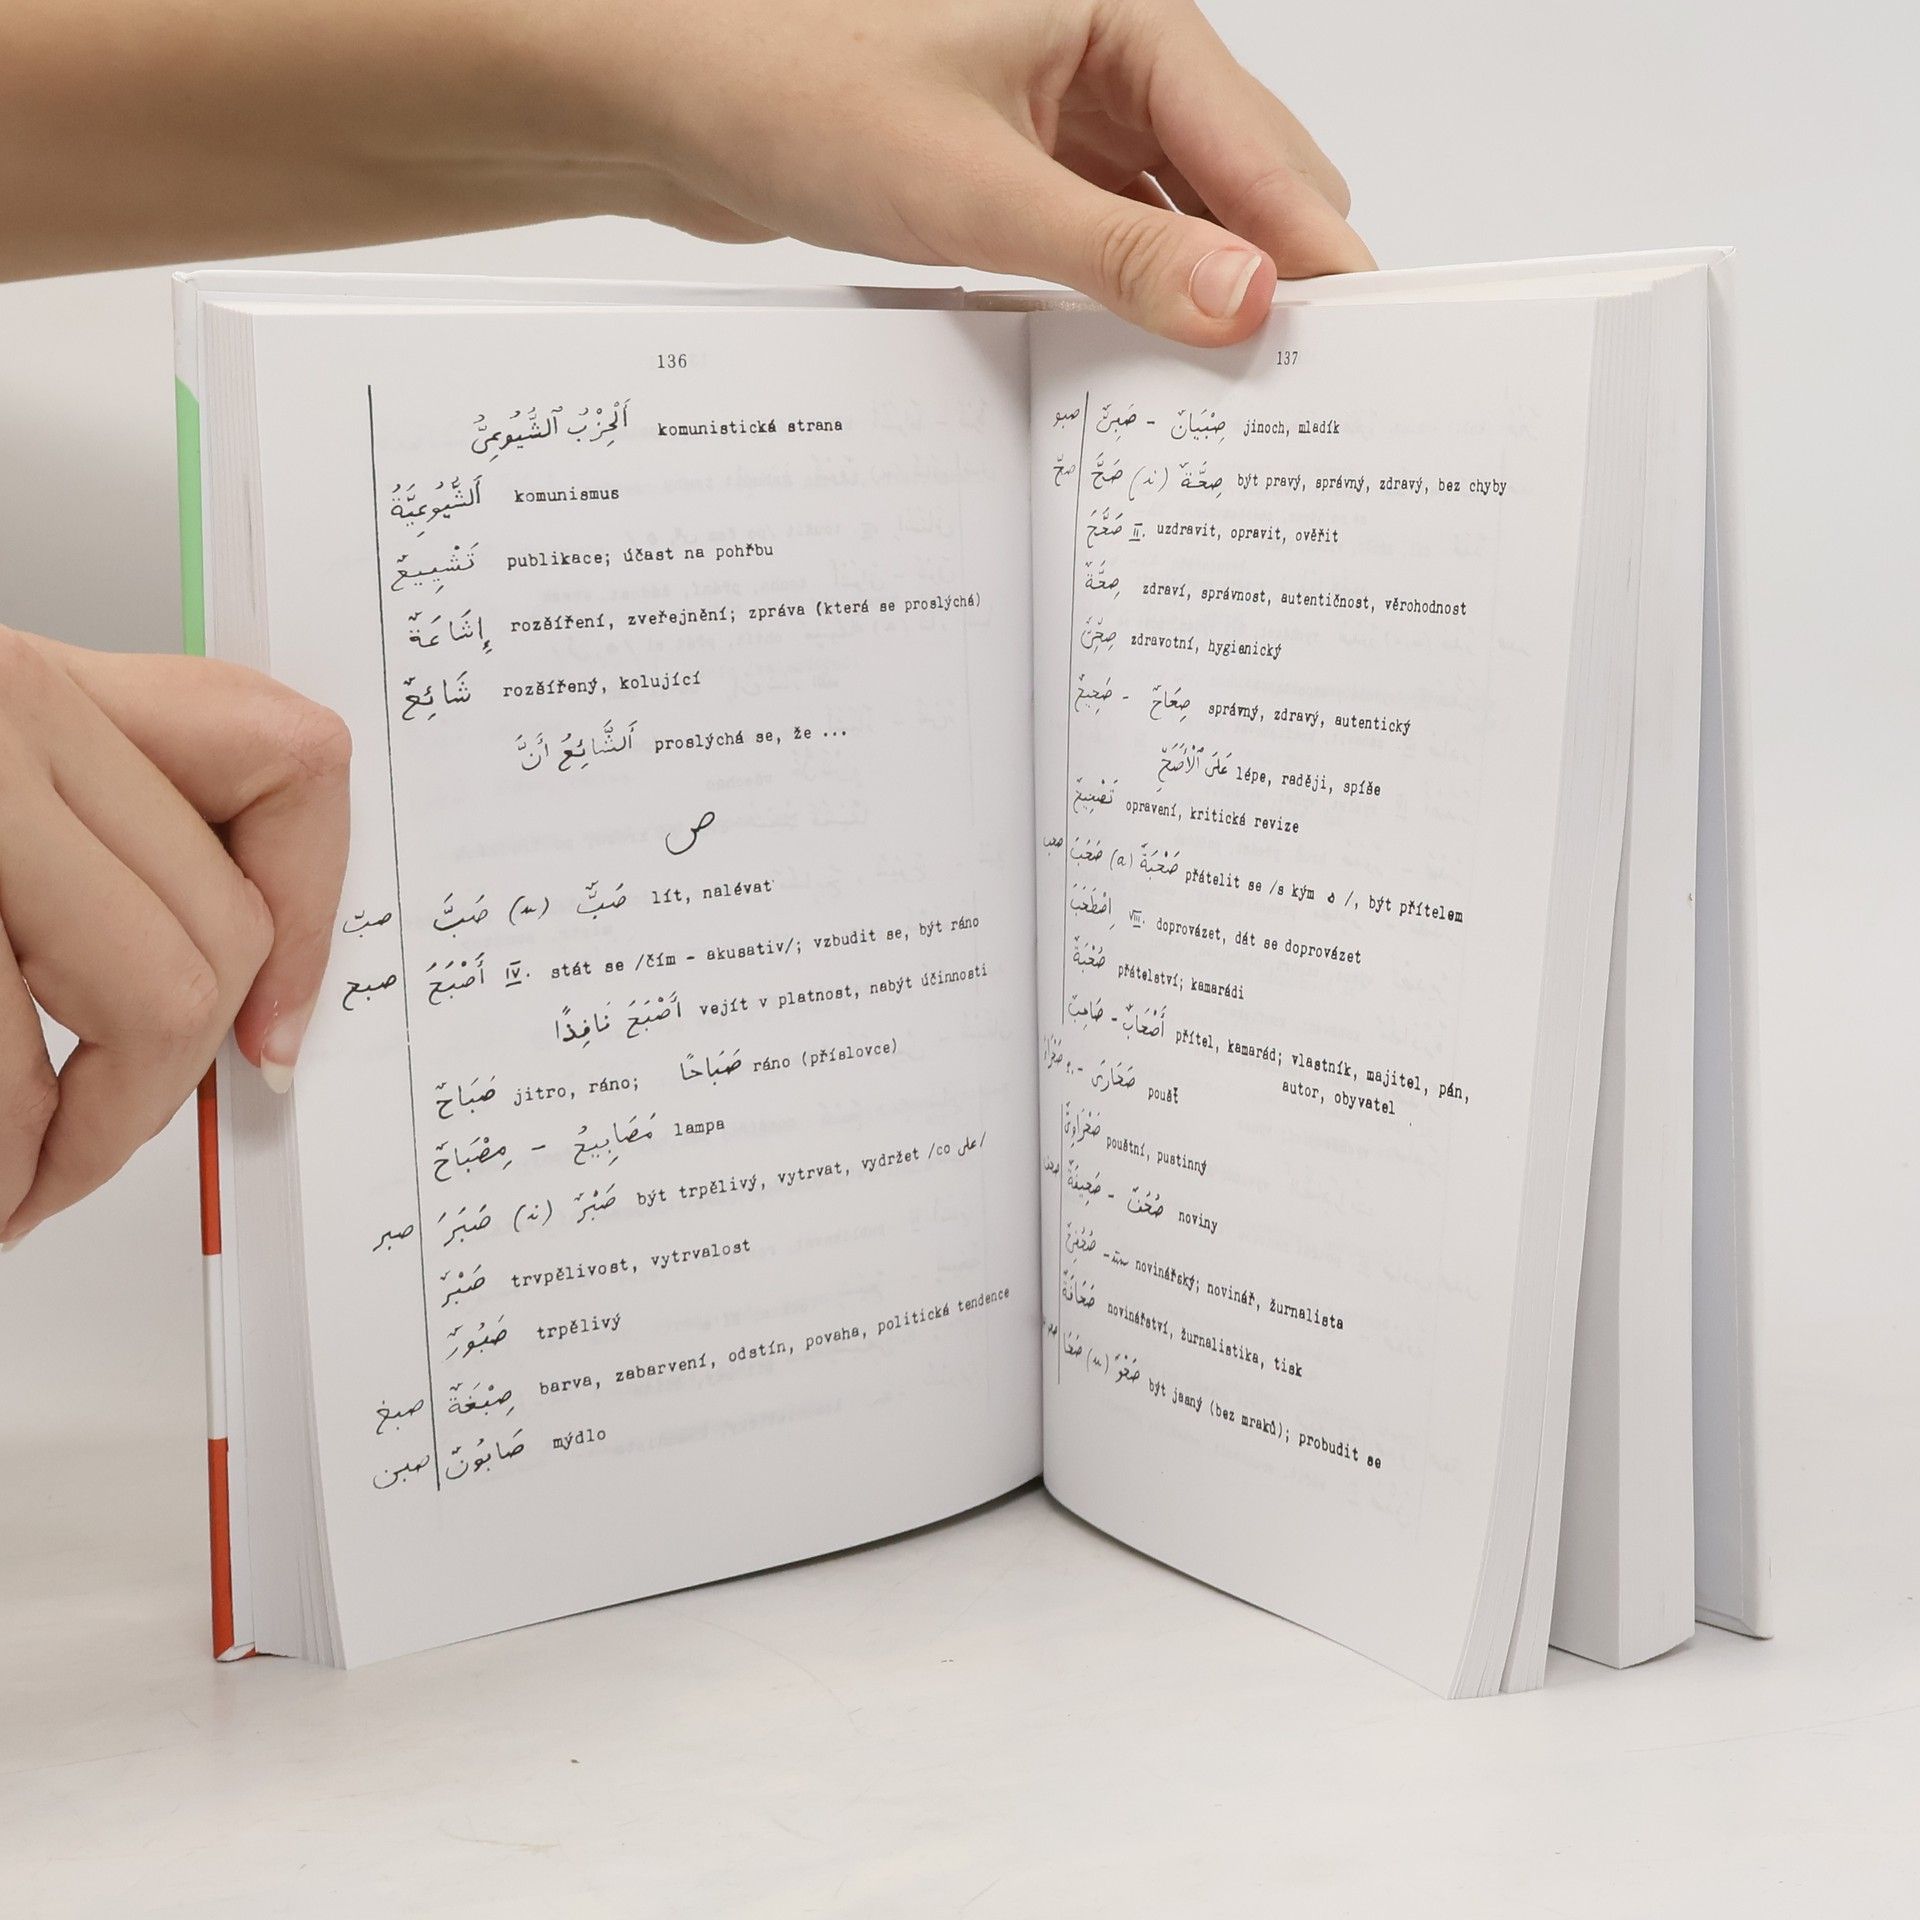 136
اَلْحِزْبُ ٱلشُّيُوعِيُّ komunistická strana
اَلشُّيُوعِيَّةُ komunismus
تَشْيِيعٌ publikace; účast na pohřbu
إِشَاعَةٌ rozšíření, zveřejnění; zpráva (která se proslýchá)
شَائِعٌ rozšířený, kolující
اَلشَّائِعُ أَنَّ proslýchá se, že ...
ص
صبّ صَبَّ (u) صَبٌّ lít, nalévat
صبح أَصْبَحَ IV. stát se /čím - akusativ/; vzbudit se, být ráno
أَصْبَحَ نَافِذًا vejít v platnost, nabýt účinnosti
صَبَاحٌ jitro, ráno; صَبَاحًا ráno (příslovce)
مِصْبَاحٌ - مَصَابِيحُ lampa
صبر صَبَرَ (i) صَبْرٌ být trpělivý, vytrvat, vydržet /co على/
صَبْرٌ trvpělivost, vytrvalost
صَبُورٌ trpělivý
صبغ صِبْغَةٌ barva, zabarvení, odstín, povaha, politická tendence
صبن صَابُونٌ mýdlo
137
صبو صَبِيٌّ - صِبْيَانٌ jinoch, mladík
صحّ صَحَّ (i) صِحَّةٌ být pravý, správný, zdravý, bez chyby
صَحَّحَ II. uzdravit, opravit, ověřit
صِحَّةٌ zdraví, správnost, autentičnost, věrohodnost
صِحِّيٌّ zdravotní, hygienický
صَحِيحٌ - صِحَاحٌ správný, zdravý, autentický
عَلَى ٱلْأَصَحِّ lépe, raději, spíše
تَصْحِيحٌ opravení, kritická revize
صحب صَحِبَ (a) صُحْبَةٌ přátelit se /s kým ه /, být přítelem
اِصْطَحَبَ VIII. doprovázet, dát se doprovázet
صُحْبَةٌ přátelství; kamarádi
صَاحِبٌ - أَصْحَابٌ přítel, kamarád; vlastník, majitel, pán,
autor, obyvatel
صَحْرَاءُ - صَحَارَى poušť
صَحْرَاوِيٌّ pouštní, pustinný
صحف صَحِيفَةٌ - صُحُفٌ noviny
صُحُفِيٌّ - novinářský; novinář, žurnalista
صَحَافَةٌ novinářství, žurnalistika, tisk
صَحَا (u) صَحْوٌ být jasný (bez mraků); probudit se